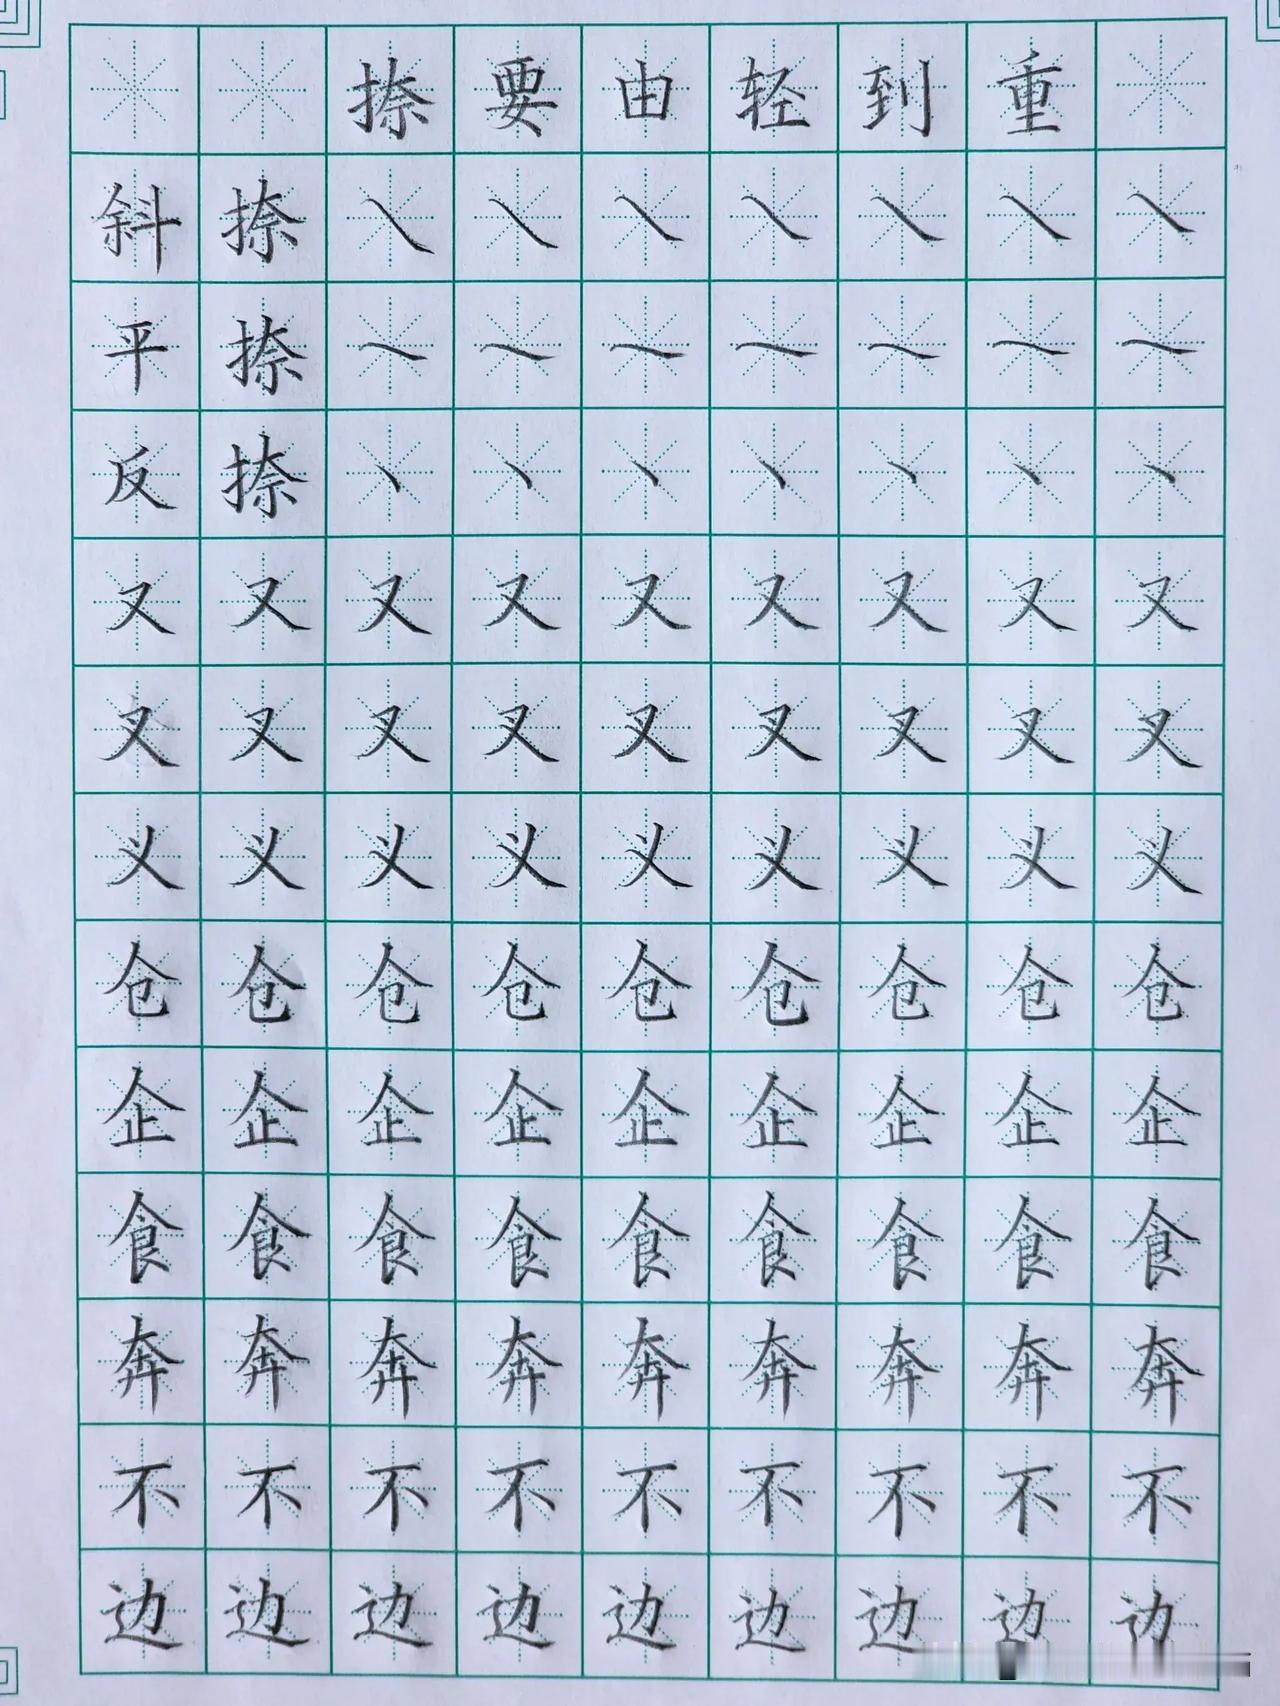 捺要由轻到重
斜捺㇏㇏㇏㇏㇏㇏㇏
平捺㇏㇏㇏㇏㇏㇏㇏
反捺丶丶丶丶丶丶丶
又又又又又又又又又
叉叉叉叉叉叉叉叉叉
义义义义义义义义义
仓仓仓仓仓仓仓仓仓
企企企企企企企企企
食食食食食食食食食
奔奔奔奔奔奔奔奔奔
不不不不不不不不不
边边边边边边边边边